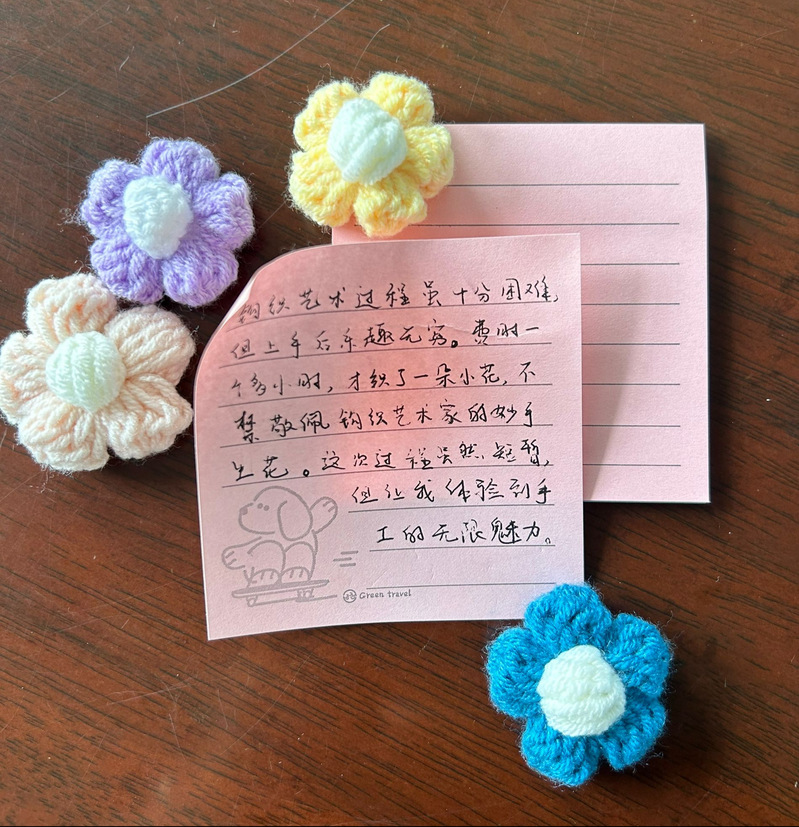 钩织艺术过程虽十分困难,
但上手后乐趣无穷。费时一
个多小时,才织了一朵小花,不
禁敬佩钩织艺术家的妙手
生花。这次过程虽然短暂,
但让我体验到手
工的无限魅力。
Green travel